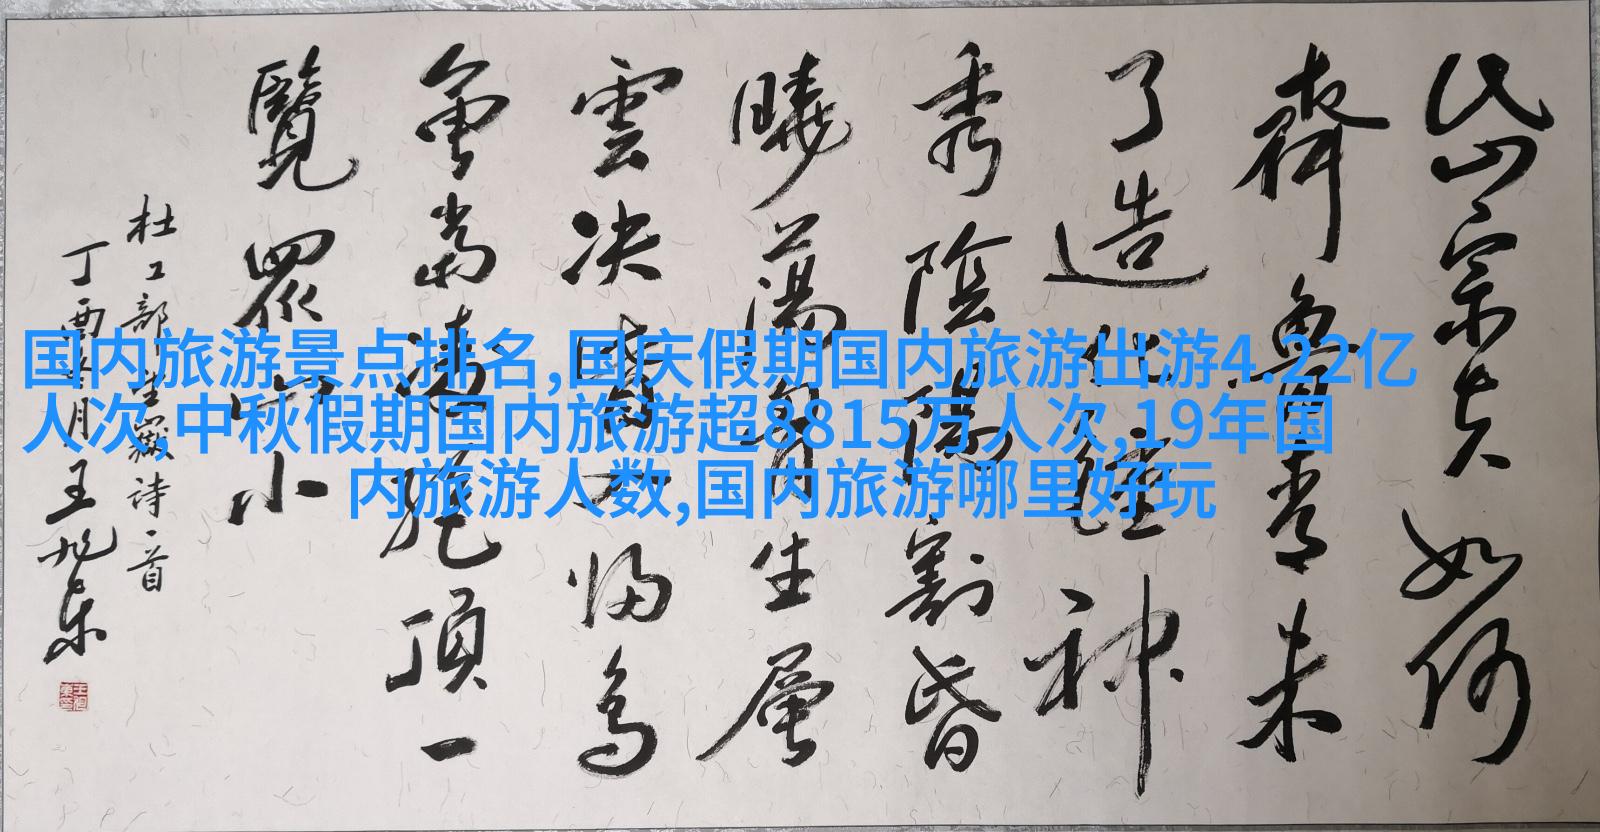 岱宗夫如何
齊魯青未
了造化鍾神
秀陰陽割昏
曉蕩胸生層
雲决眥入歸鳥
會當凌絕頂一
覽眾山小
杜工部望嶽詩一首
丁酉月王旭东
国内旅游景点排名,国庆假期国内旅游出游4.22亿
人次,中秋假期国内旅游超8815万人次,19年国
内旅游人数,国内旅游哪里好玩